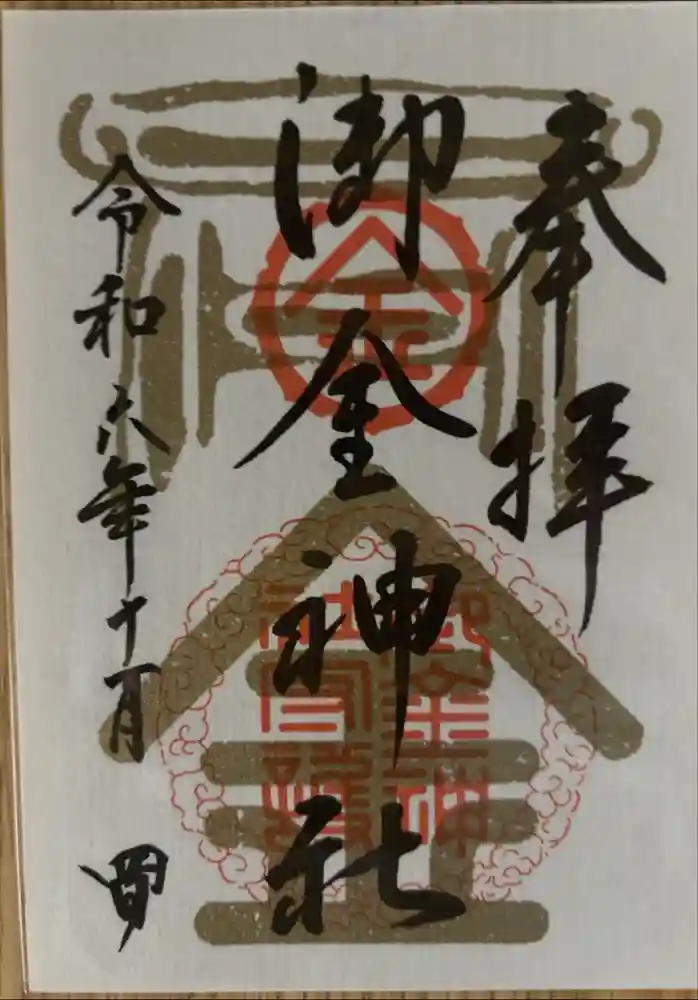 奉拝
金
御金神社
令和六年十一月 四日